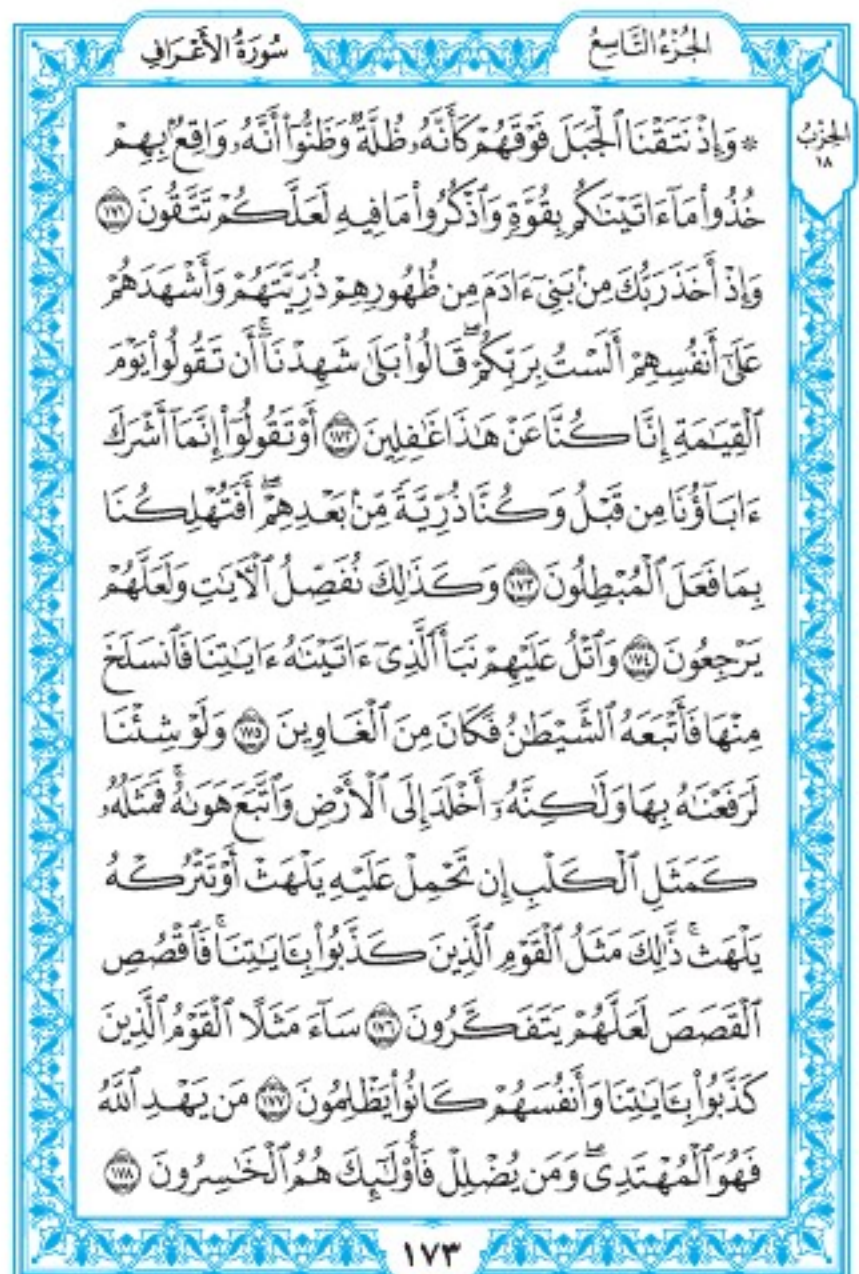 الجُزْءُ التَّاسِعُ
سُورَةُ الأَعْرَافِ
الحِزْبُ
١٨
* وَإِذْ نَتَقْنَا ٱلْجَبَلَ فَوْقَهُمْ كَأَنَّهُۥ ظُلَّةٌ وَظَنُّوٓا۟ أَنَّهُۥ وَاقِعٌۢ بِهِمْ
خُذُوا۟ مَآ ءَاتَيْنَٰكُم بِقُوَّةٍ وَٱذْكُرُوا۟ مَا فِيهِ لَعَلَّكُمْ تَتَّقُونَ ١٧١
وَإِذْ أَخَذَ رَبُّكَ مِنۢ بَنِىٓ ءَادَمَ مِن ظُهُورِهِمْ ذُرِّيَّتَهُمْ وَأَشْهَدَهُمْ
عَلَىٰٓ أَنفُسِهِمْ أَلَسْتُ بِرَبِّكُمْ ۖ قَالُوا۟ بَلَىٰ شَهِدْنَآ ۚ أَن تَقُولُوا۟ يَوْمَ
ٱلْقِيَٰمَةِ إِنَّا كُنَّا عَنْ هَٰذَا غَٰفِلِينَ ١٧٢ أَوْ تَقُولُوٓا۟ إِنَّمَآ أَشْرَكَ
ءَابَآؤُنَا مِن قَبْلُ وَكُنَّا ذُرِّيَّةً مِّنۢ بَعْدِهِمْ ۖ أَفَتُهْلِكُنَا
بِمَا فَعَلَ ٱلْمُبْطِلُونَ ١٧٣ وَكَذَٰلِكَ نُفَصِّلُ ٱلْءَايَٰتِ وَلَعَلَّهُمْ
يَرْجِعُونَ ١٧٤ وَٱتْلُ عَلَيْهِمْ نَبَأَ ٱلَّذِىٓ ءَاتَيْنَٰهُ ءَايَٰتِنَا فَٱنسَلَخَ
مِنْهَا فَأَتْبَعَهُ ٱلشَّيْطَٰنُ فَكَانَ مِنَ ٱلْغَاوِينَ ١٧٥ وَلَوْ شِئْنَا
لَرَفَعْنَٰهُ بِهَا وَلَٰكِنَّهُۥٓ أَخْلَدَ إِلَى ٱلْأَرْضِ وَٱتَّبَعَ هَوَىٰهُ ۚ فَمَثَلُهُۥ
كَمَثَلِ ٱلْكَلْبِ إِن تَحْمِلْ عَلَيْهِ يَلْهَثْ أَوْ تَتْرُكْهُ
يَلْهَث ۚ ذَّٰلِكَ مَثَلُ ٱلْقَوْمِ ٱلَّذِينَ كَذَّبُوا۟ بِـَٔايَٰتِنَا ۚ فَٱقْصُصِ
ٱلْقَصَصَ لَعَلَّهُمْ يَتَفَكَّرُونَ ١٧٦ سَآءَ مَثَلًا ٱلْقَوْمُ ٱلَّذِينَ
كَذَّبُوا۟ بِـَٔايَٰتِنَا وَأَنفُسَهُمْ كَانُوا۟ يَظْلِمُونَ ١٧٧ مَن يَهْدِ ٱللَّهُ
فَهُوَ ٱلْمُهْتَدِى ۖ وَمَن يُضْلِلْ فَأُو۟لَٰٓئِكَ هُمُ ٱلْخَٰسِرُونَ ١٧٨
١٧٣